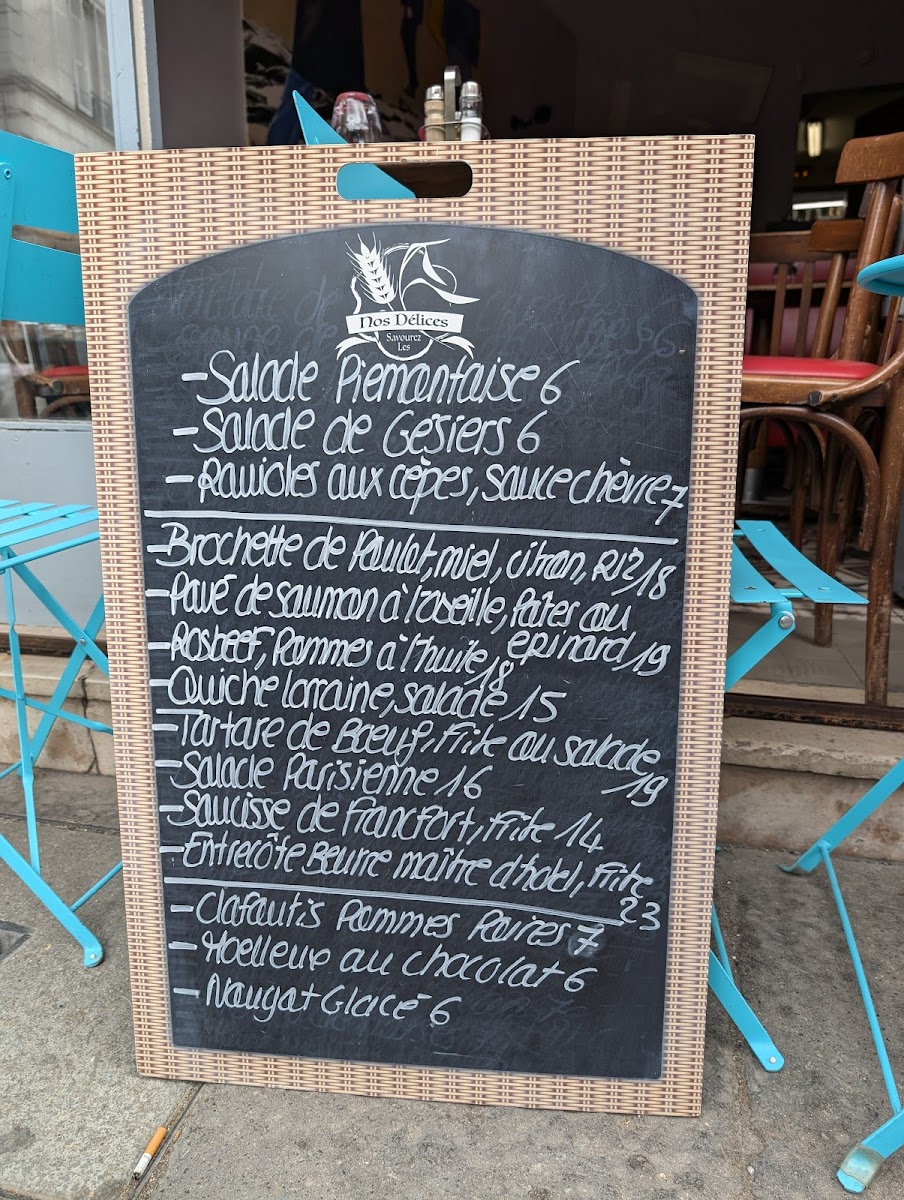 Nos Délices
Savourez
Les
- Salade Piemontaise 6
- Salade de Gésiers 6
- Ravioles aux cèpes, sauce chèvre 7
- Brochette de Poulet, miel, citron, Riz 18
- Pavé de saumon à l'oseille, Pâtes au
epinard, 19
- Rosbeef, Pommes à l'huile, 18
- Quiche lorraine, salade, 15
- Tartare de Bœuf, Frite au salade
19
- Salade Parisienne 16
- Saucisse de Francfort, Frite 14
- Entrecôte Beurre maître d'hotel, Frite
23
- Clafoutis Pommes Poires 7
- Moelleux au chocolat 6
- Nougat Glacé 6